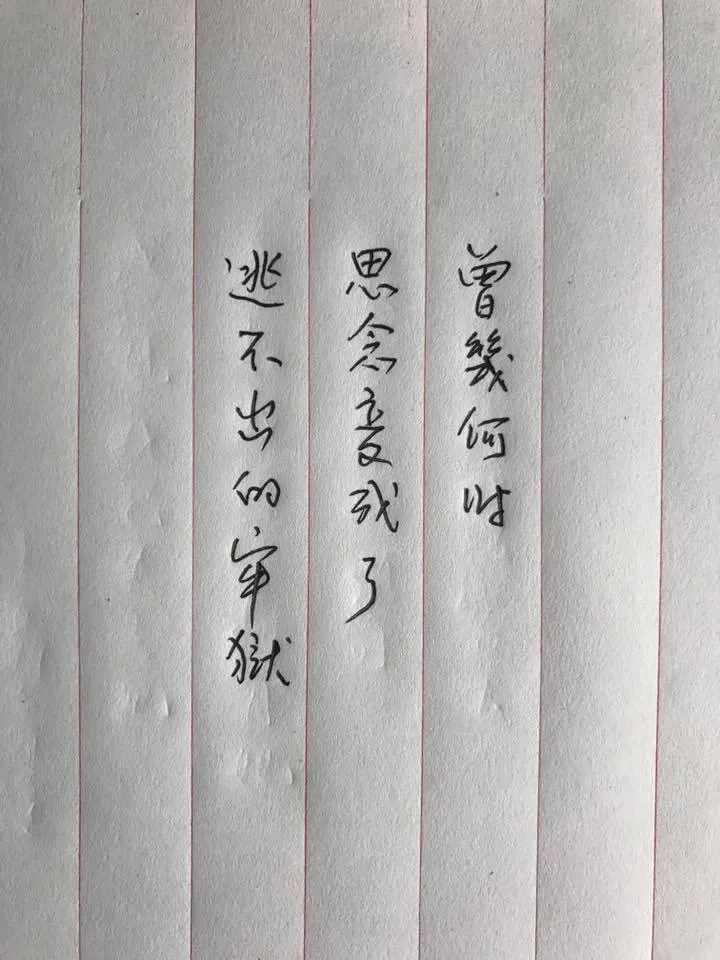 曾幾何时
思念变成了
逃不出的牢獄